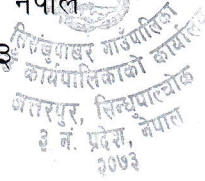 नेपाल
त्रिपुरासुन्दरी गाउँपालिका
कार्यपालिकाको कार्यालय
अत्तरपुर, सिन्धुपाल्चोक
३ नं. प्रदेश, नेपाल
२०७३